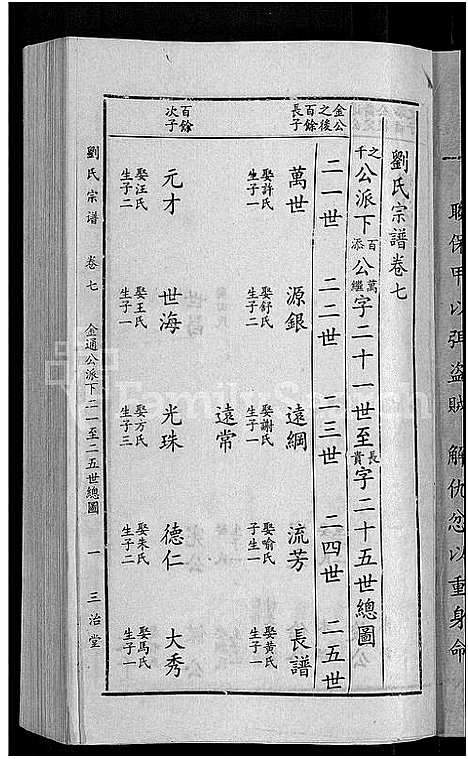 聯保甲以弭盜賊 解仇忿以重身命
劉氏宗譜卷七
之千公派下百添公萬繼字二十一世至長貴字二十五世總圖
二一世 二二世 二三世 二四世 二五世
金公之後百餘長子
萬世 娶許氏 生子一
源銀 娶舒氏 生子二
遠綱 娶謝氏 生子一
流芳 娶喻氏 子生一
長譜 娶黃氏 生子一
遠常
百餘次子
元才 娶汪氏 生子二
世海 娶王氏 生子一
光珠 娶方氏 生子三
德仁 娶朱氏 生子二
大秀 娶馬氏 生子一
劉氏宗譜 卷七 金通公派下二一至二五世總圖 一 三治堂
FamilySearch